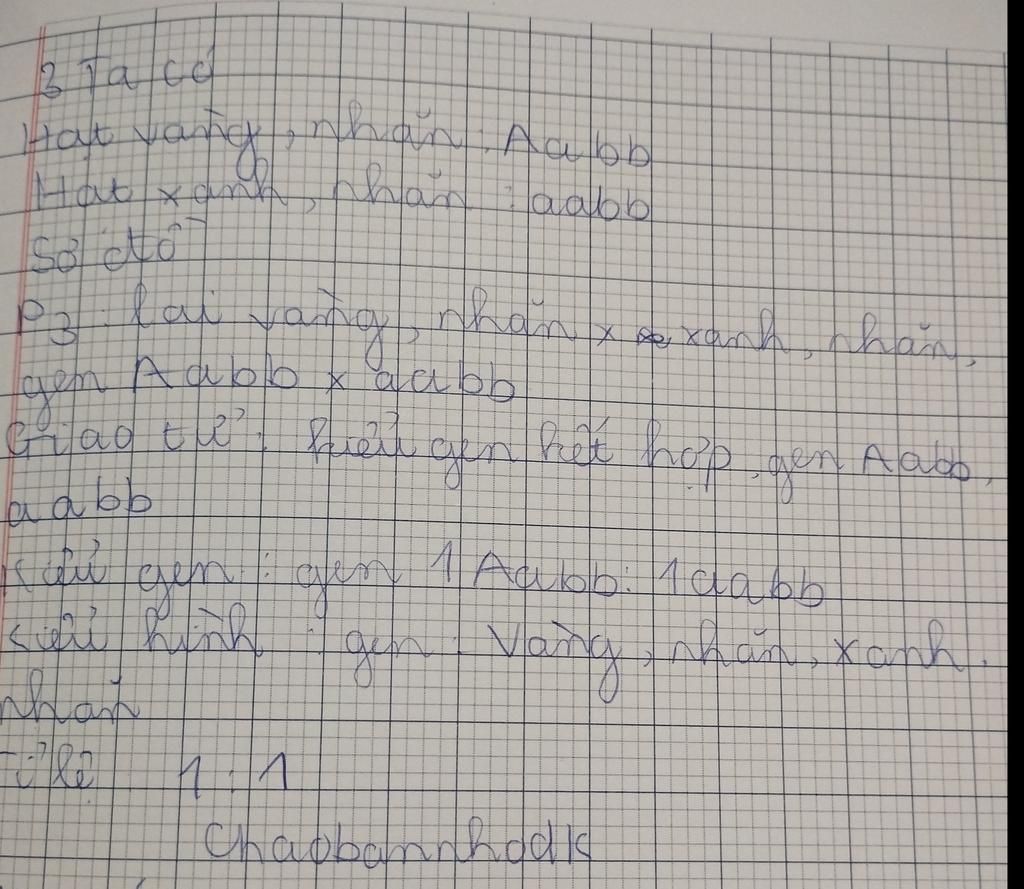 3 Ta có
Hạt vàng, nhăn : Aabb
Hạt xanh, nhăn : aabb
Sơ đồ
P3 : lai vàng, nhăn x xanh, nhăn,
gen Aabb x aabb
Giao tử : kiểu gen kết hợp gen Aabb,
aabb
Kiểu gen : gen 1 Aabb : 1aabb
Kiểu hình : gen : Vàng, nhăn, xanh,
nhăn
Tỉ lệ 1 : 1
Chaobamnhodk